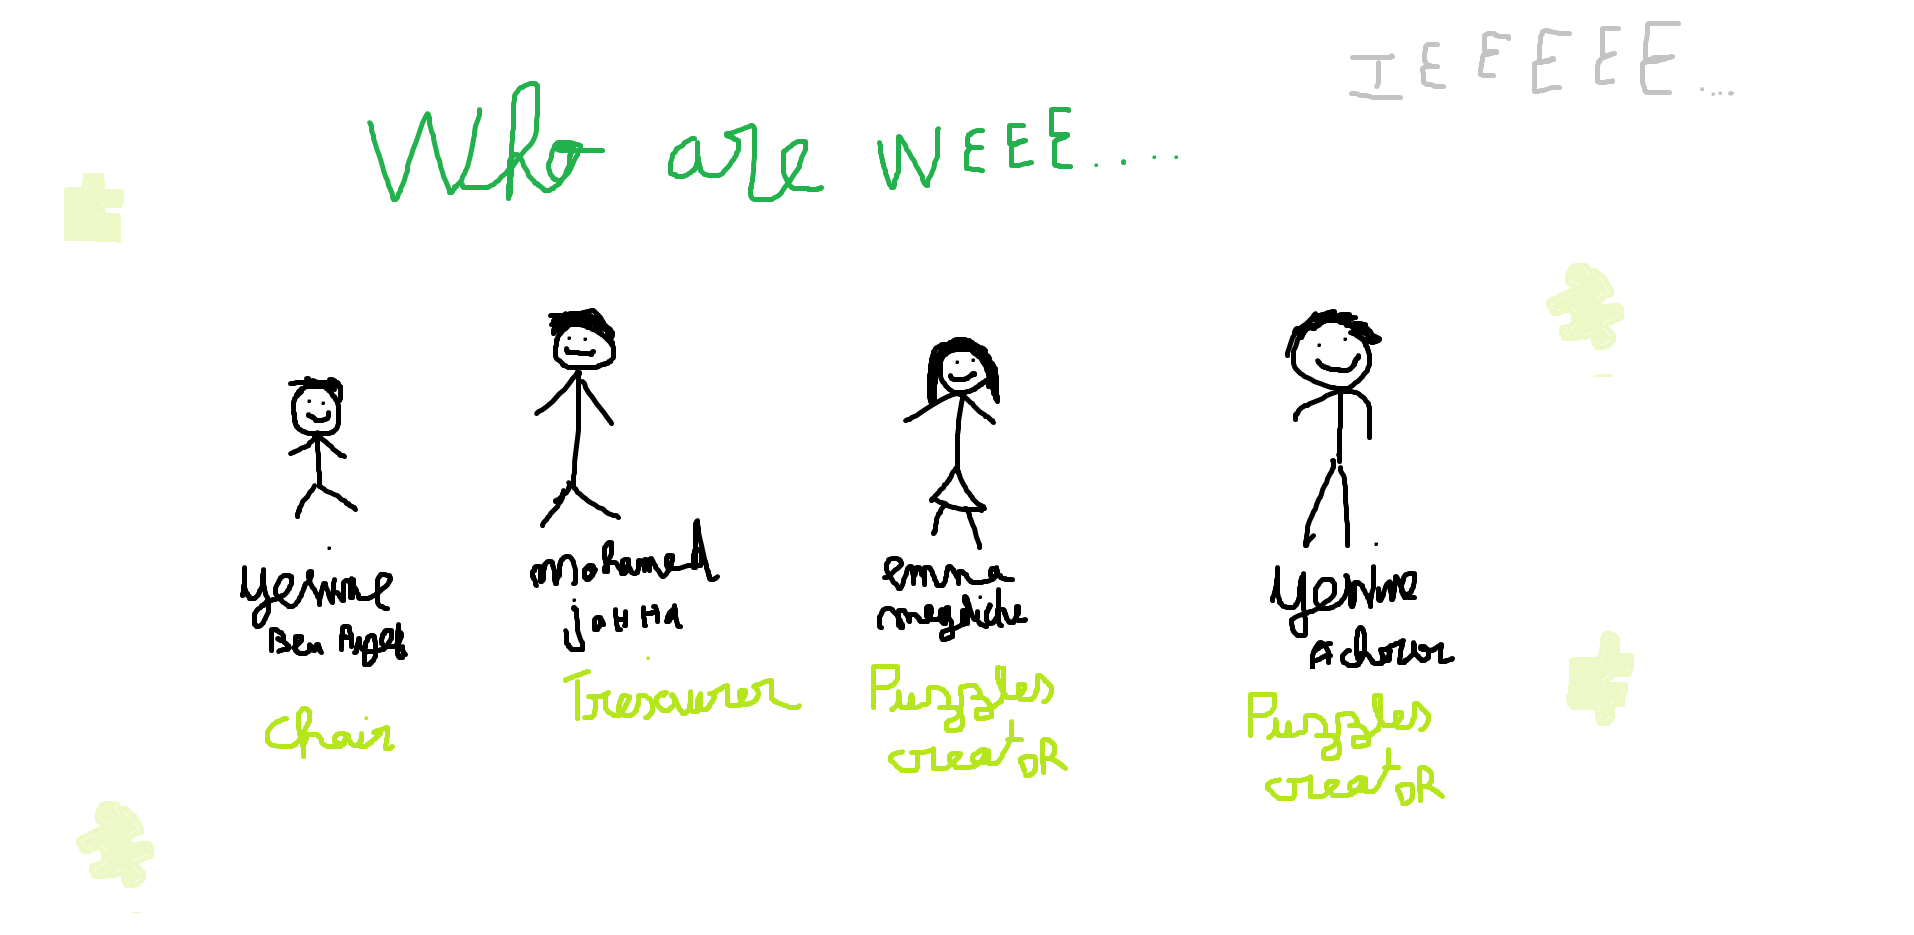 IEEEEE....
Who are WEEE....
Yessine
Ben
Chair
mohamed
jaHHa
Tresaurer
emna
megdiche
Puzzles
creatOR
Yessine
Achour
Puzzles
creatOR